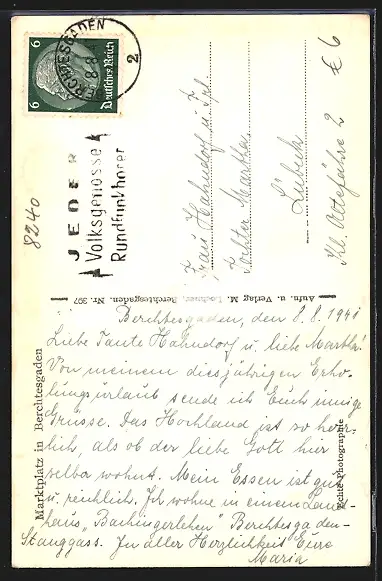 6 6
Deutsches Reich
BERCHTESGADEN
2
JEDER
Volksgenosse
Rundfunkhörer
8240
Frau Hahndorf u. Frl.
Tochter Martha
Lübeck
Kl. Altefähre 2
€6
Aufn. u. Verlag M. Lochner, Berchtesgaden. Nr. 397
Marktplatz in Berchtesgaden
Echte Photographie
Berchtesgaden, den 2.8.1941
Liebe Tante Hahndorf u. liebe Martha!
Von meinem diesjährigen Erho-
lungsurlaub sende ich Euch innige
Grüsse. Das Hochland ist so herr-
lich, als ob der liebe Gott hier
selbst wohnt. Mein Essen ist gut
u. reichlich. Ich wohne in einem Land-
haus, Berchtesgaden-
Stanggass. In aller Herzlichkeit Eure
Maria